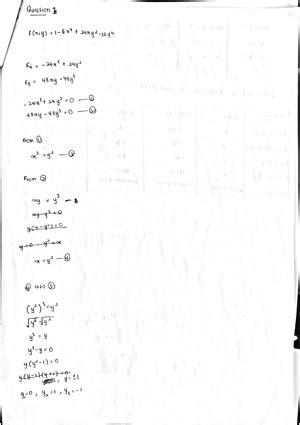 Question 1
f(x,y) = 1-6x⁴ + 24xy² - 12y⁴
Fx = -24x³ + 24y²
Fy = 48xy - 48y³
-24x³ + 24y² = 0 — ①
48xy - 48y³ = 0 — ②
From ①
x³ = y² — ③
From ②
xy = y³
xy - y³ = 0
y(x-y²) = 0
x = y² — ④
④ into ③
(y²)³ = y²
√y⁶ = √y²
y³ = y
y³ - y = 0
y(y²-1) = 0
y(y-1)(y+1) = 0
, y = ±1
y=0 , y₂ = 1 , y₃ = -1